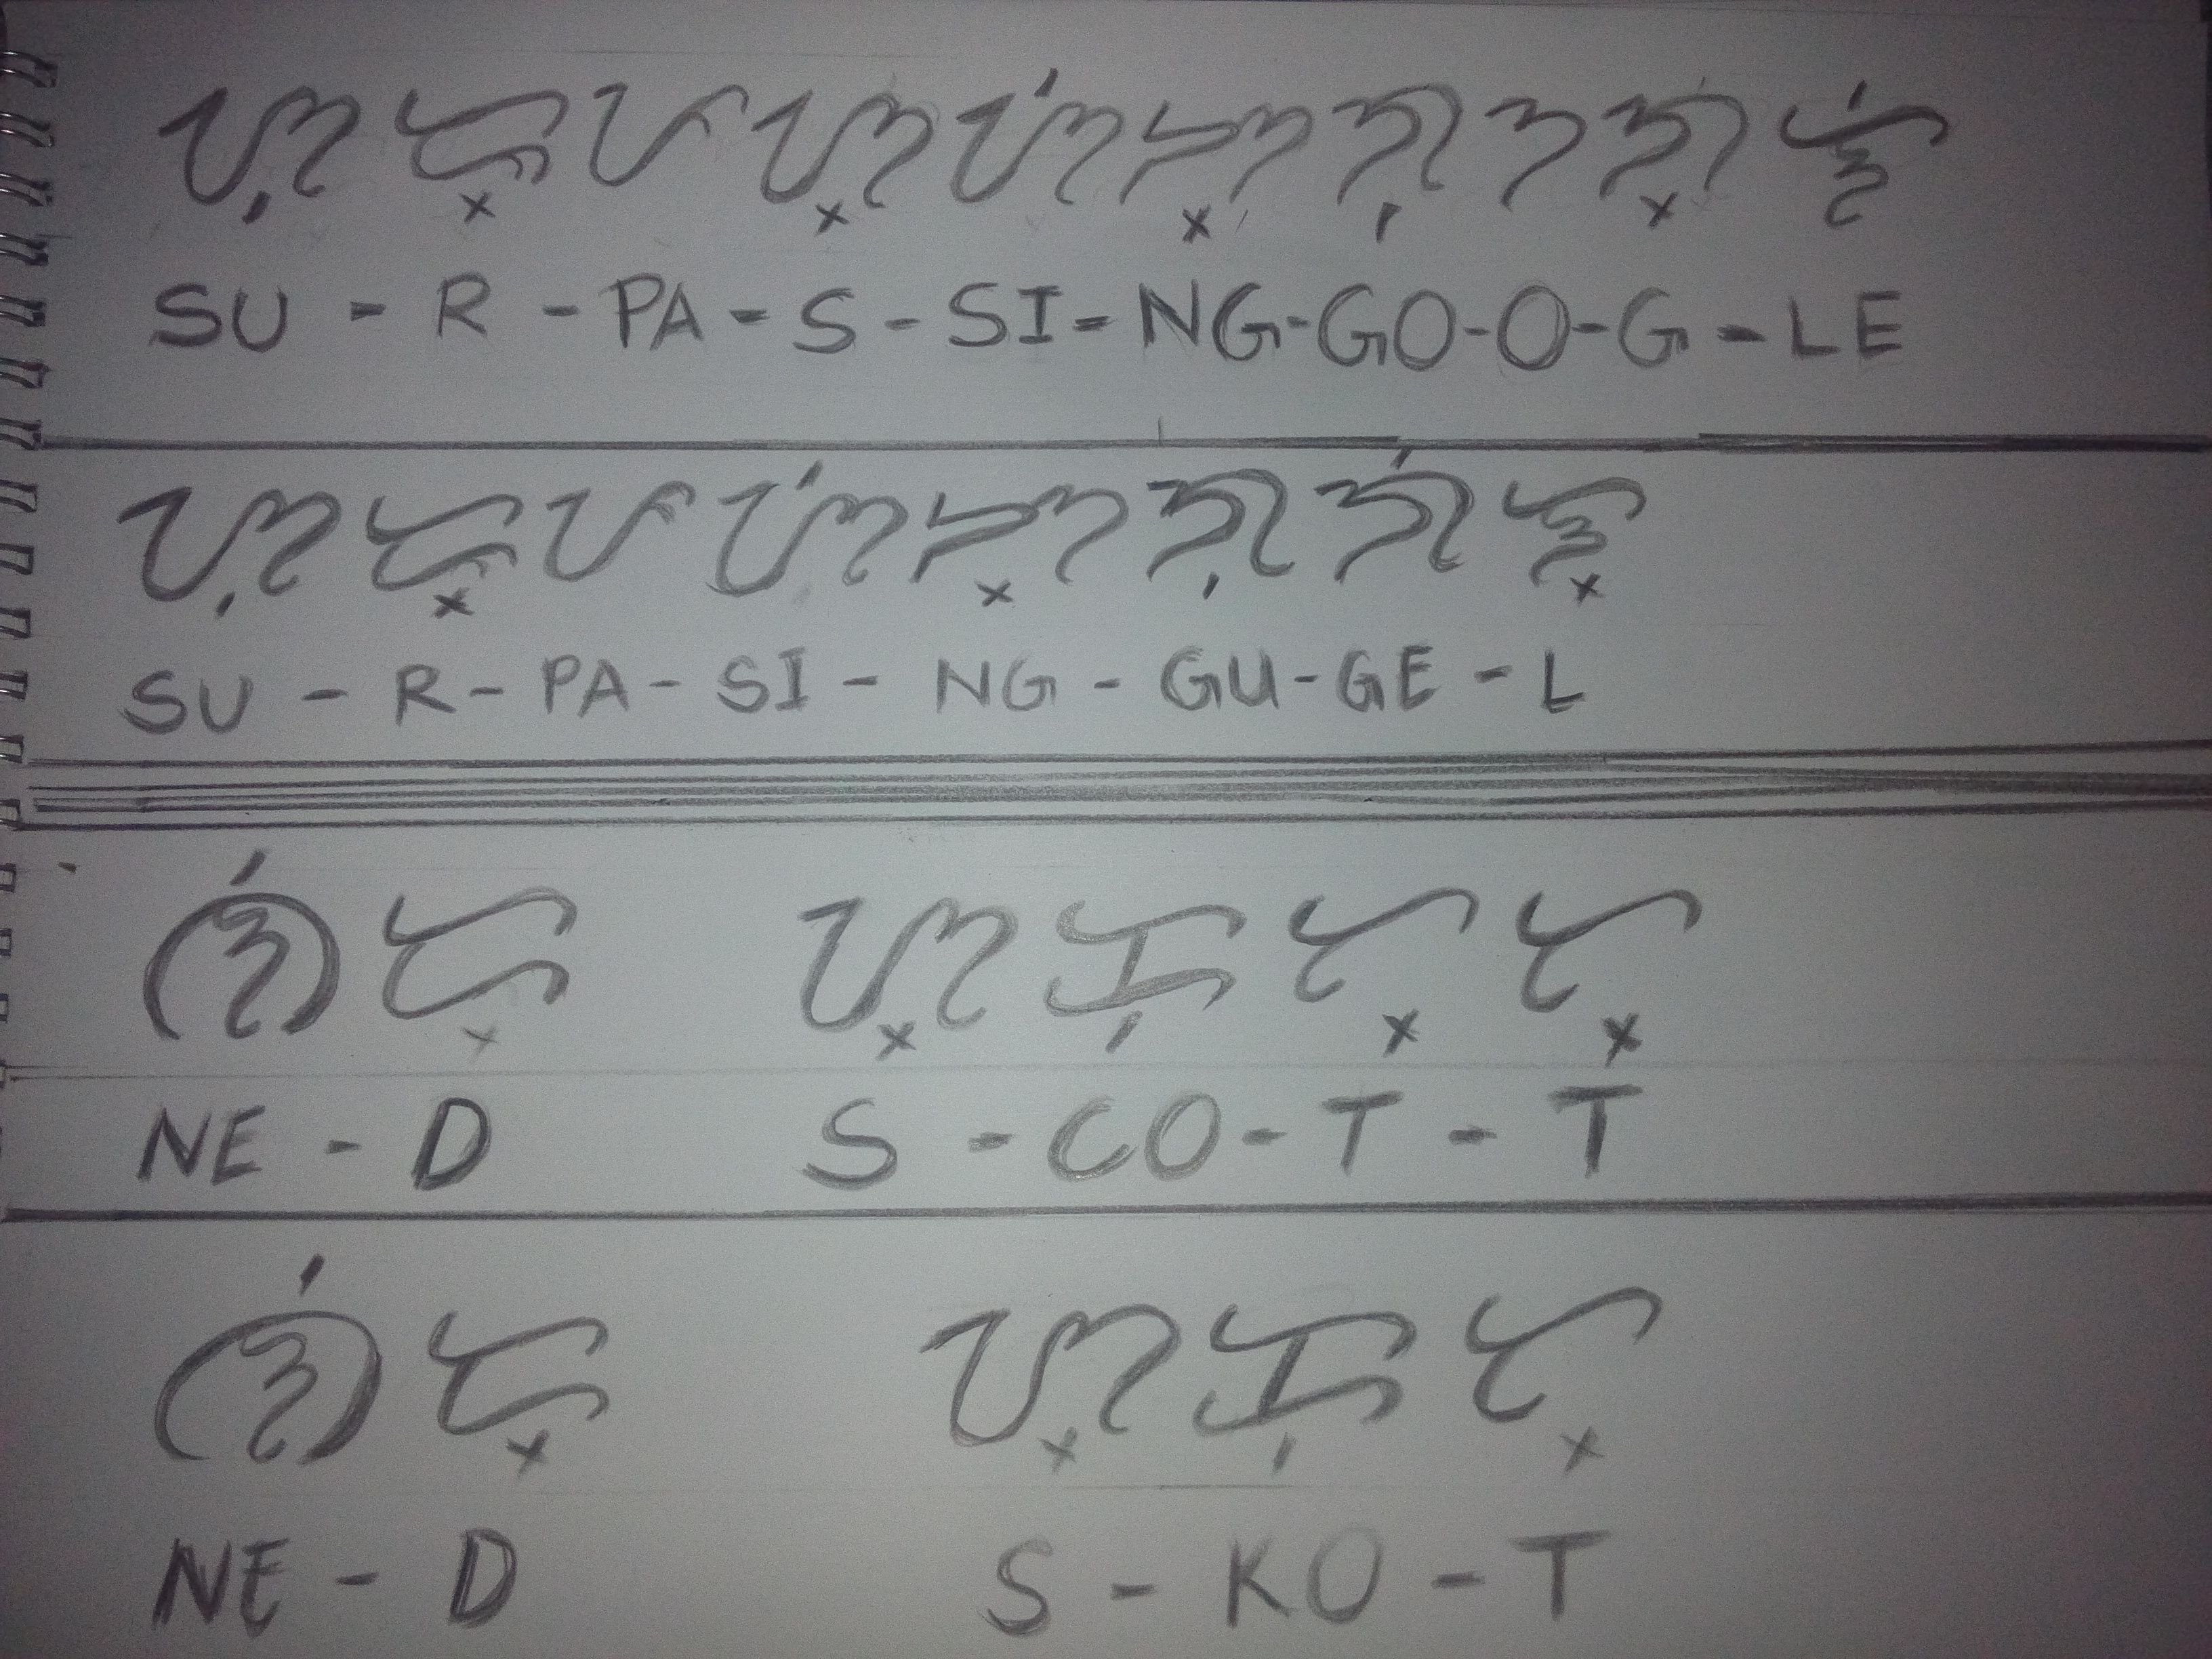 ᜐᜓᜍ᜔ᜉᜐ᜔ᜐᜒᜅ᜔ᜄᜓᜂᜄ᜔ᜎᜒ
SU - R - PA - S - SI - NG - GO - O - G - LE
ᜐᜓᜍ᜔ᜉᜐᜒᜅ᜔ᜄᜓᜄᜒᜎ᜔
SU - R - PA - SI - NG - GU - GE - L
ᜈᜒᜇ᜔ ᜐ᜔ᜃᜓᜆ᜔ᜆ᜔
NE - D S - CO - T - T
ᜈᜒᜇ᜔ ᜐ᜔ᜃᜓᜆ᜔
NE - D S - KO - T